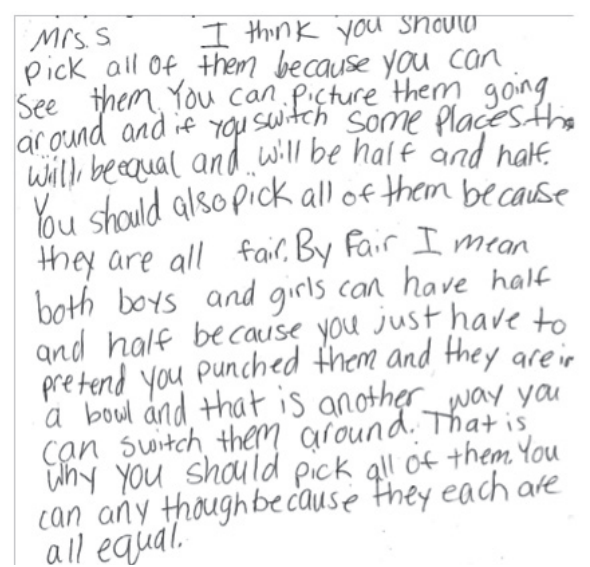 Mrs. S I think you should
pick all of them because you can
see them. You can picture them going
around and if you switch some places
will be equal and will be half and half.
You should also pick all of them because
they are all fair. By Fair I mean
both boys and girls can have half
and half because you just have to
pretend you punched them and they are in
a bowl and that is another way you
can switch them around. That is
why you should pick all of them. You
can any though because they each are
all equal.